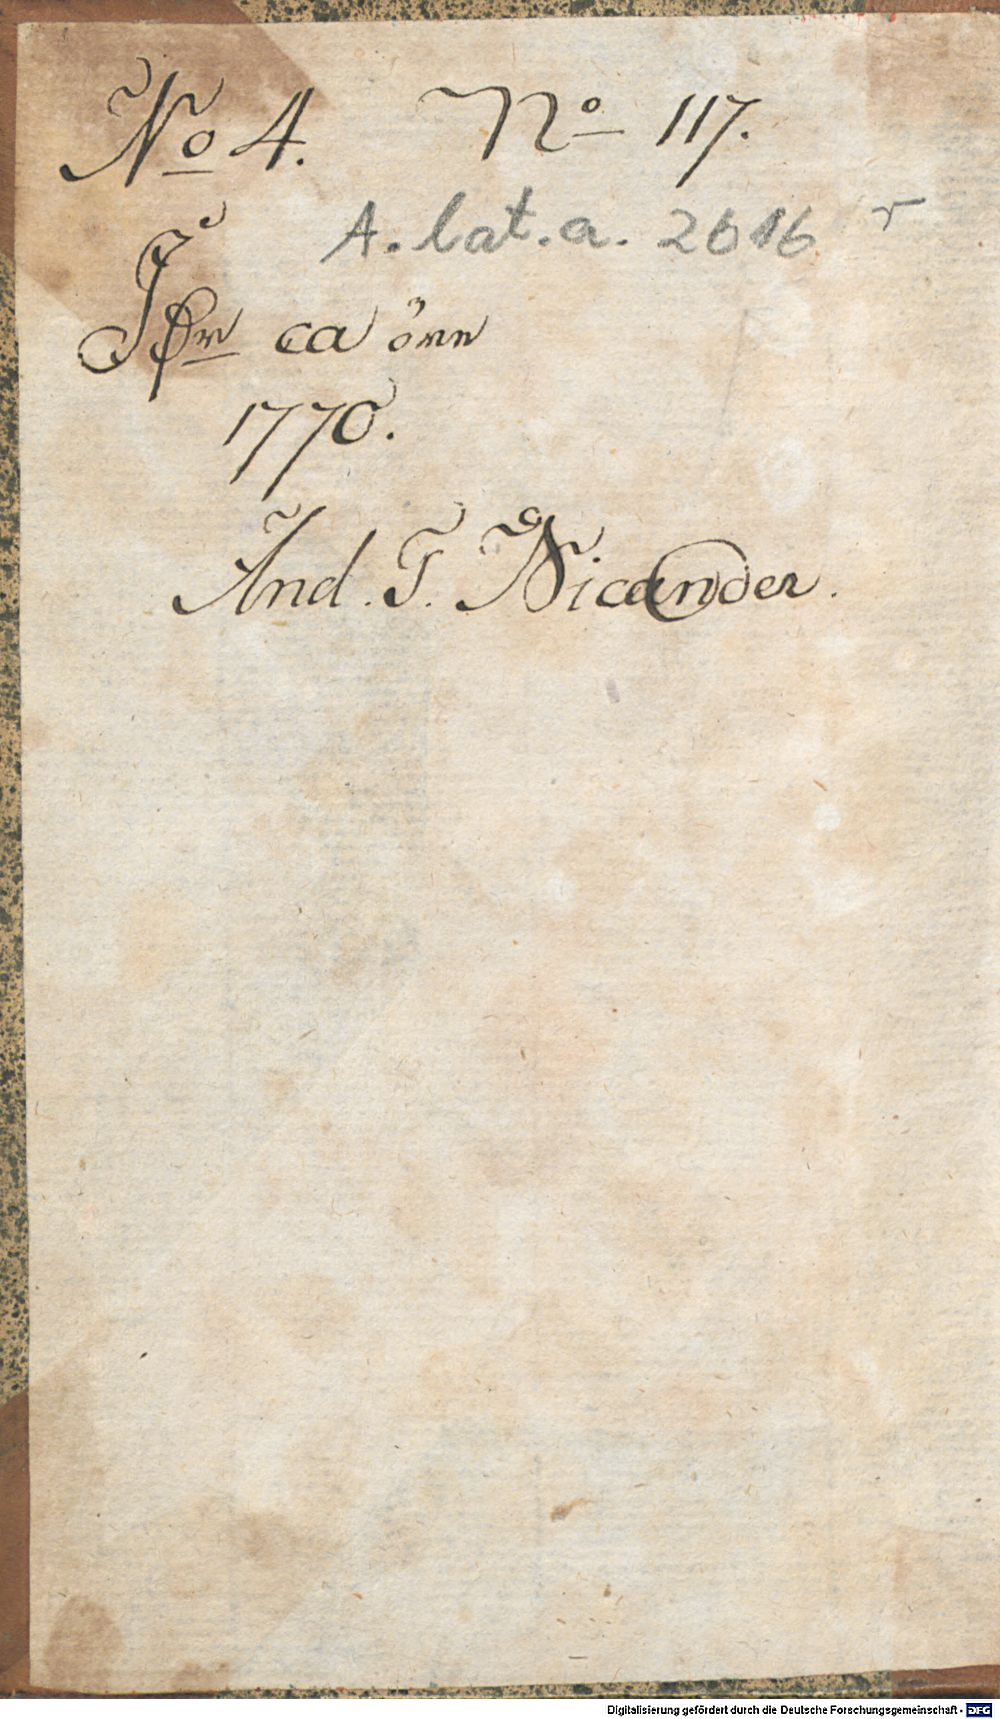 No 4. No 117.
A. lat. a. 2616
ca
1770.
And. T. Nicander.
Digitalisierung gefördert durch die Deutsche Forschungsgemeinschaft - DFG